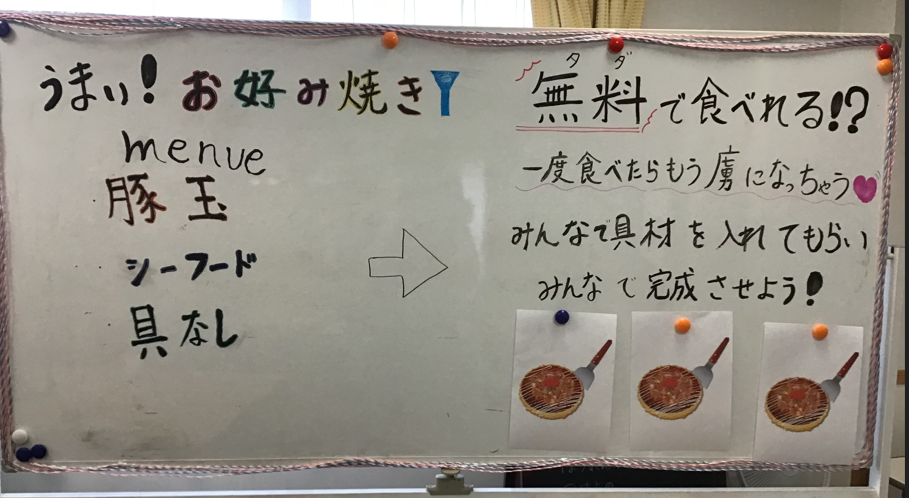 うまい！お好み焼き
menue
豚玉
シーフード
具なし
タダ
無料で食べれる!?
一度食べたらもう虜になっちゃう
みんなで具材を入れてもらい
みんなで完成させよう！